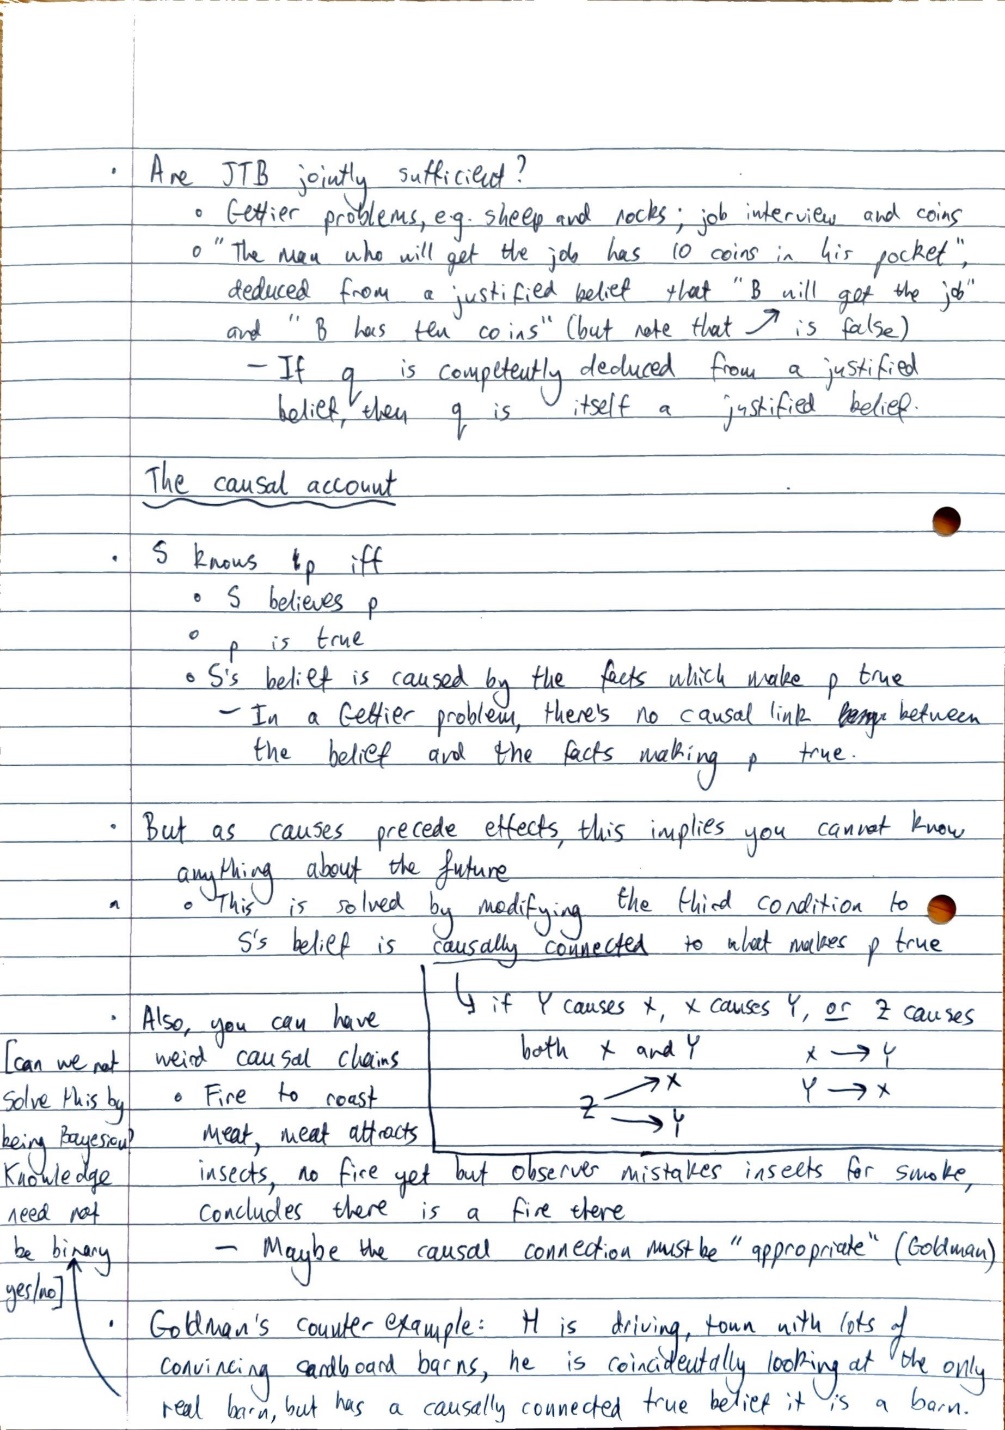 Are JTB jointly sufficient?
Gettier problems, e.g. sheep and rocks; job interview and coins
"The man who will get the job has 10 coins in his pocket",
deduced from a justified belief that "B will get the job"
and "B has ten coins" (but note that ↗ is false)
— If q is competently deduced from a justified
belief, then q is itself a justified belief.
The causal account
S knows p iff
S believes p
p is true
S's belief is caused by the facts which make p true
— In a Gettier problem, there's no causal link between
the belief and the facts making p true.
But as causes precede effects, this implies you cannot know
anything about the future
This is solved by modifying the third condition to
S's belief is causally connected to what makes p true
↳ if Y causes X, X causes Y, or Z causes
both X and Y
X → Y
Y → X
Z → X
→ Y
Also, you can have
weird causal chains
Fire to roast
meat, meat attracts
insects, no fire yet but observer mistakes insects for smoke,
concludes there is a fire there
— Maybe the causal connection must be "appropriate" (Goldman)
[can we not
solve this by
being Bayesian?
Knowledge
need not
be binary
yes/no]
Goldman's counter example: H is driving, town with lots of
convincing cardboard barns, he is coincidentally looking at the only
real barn, but has a causally connected true belief it is a barn.